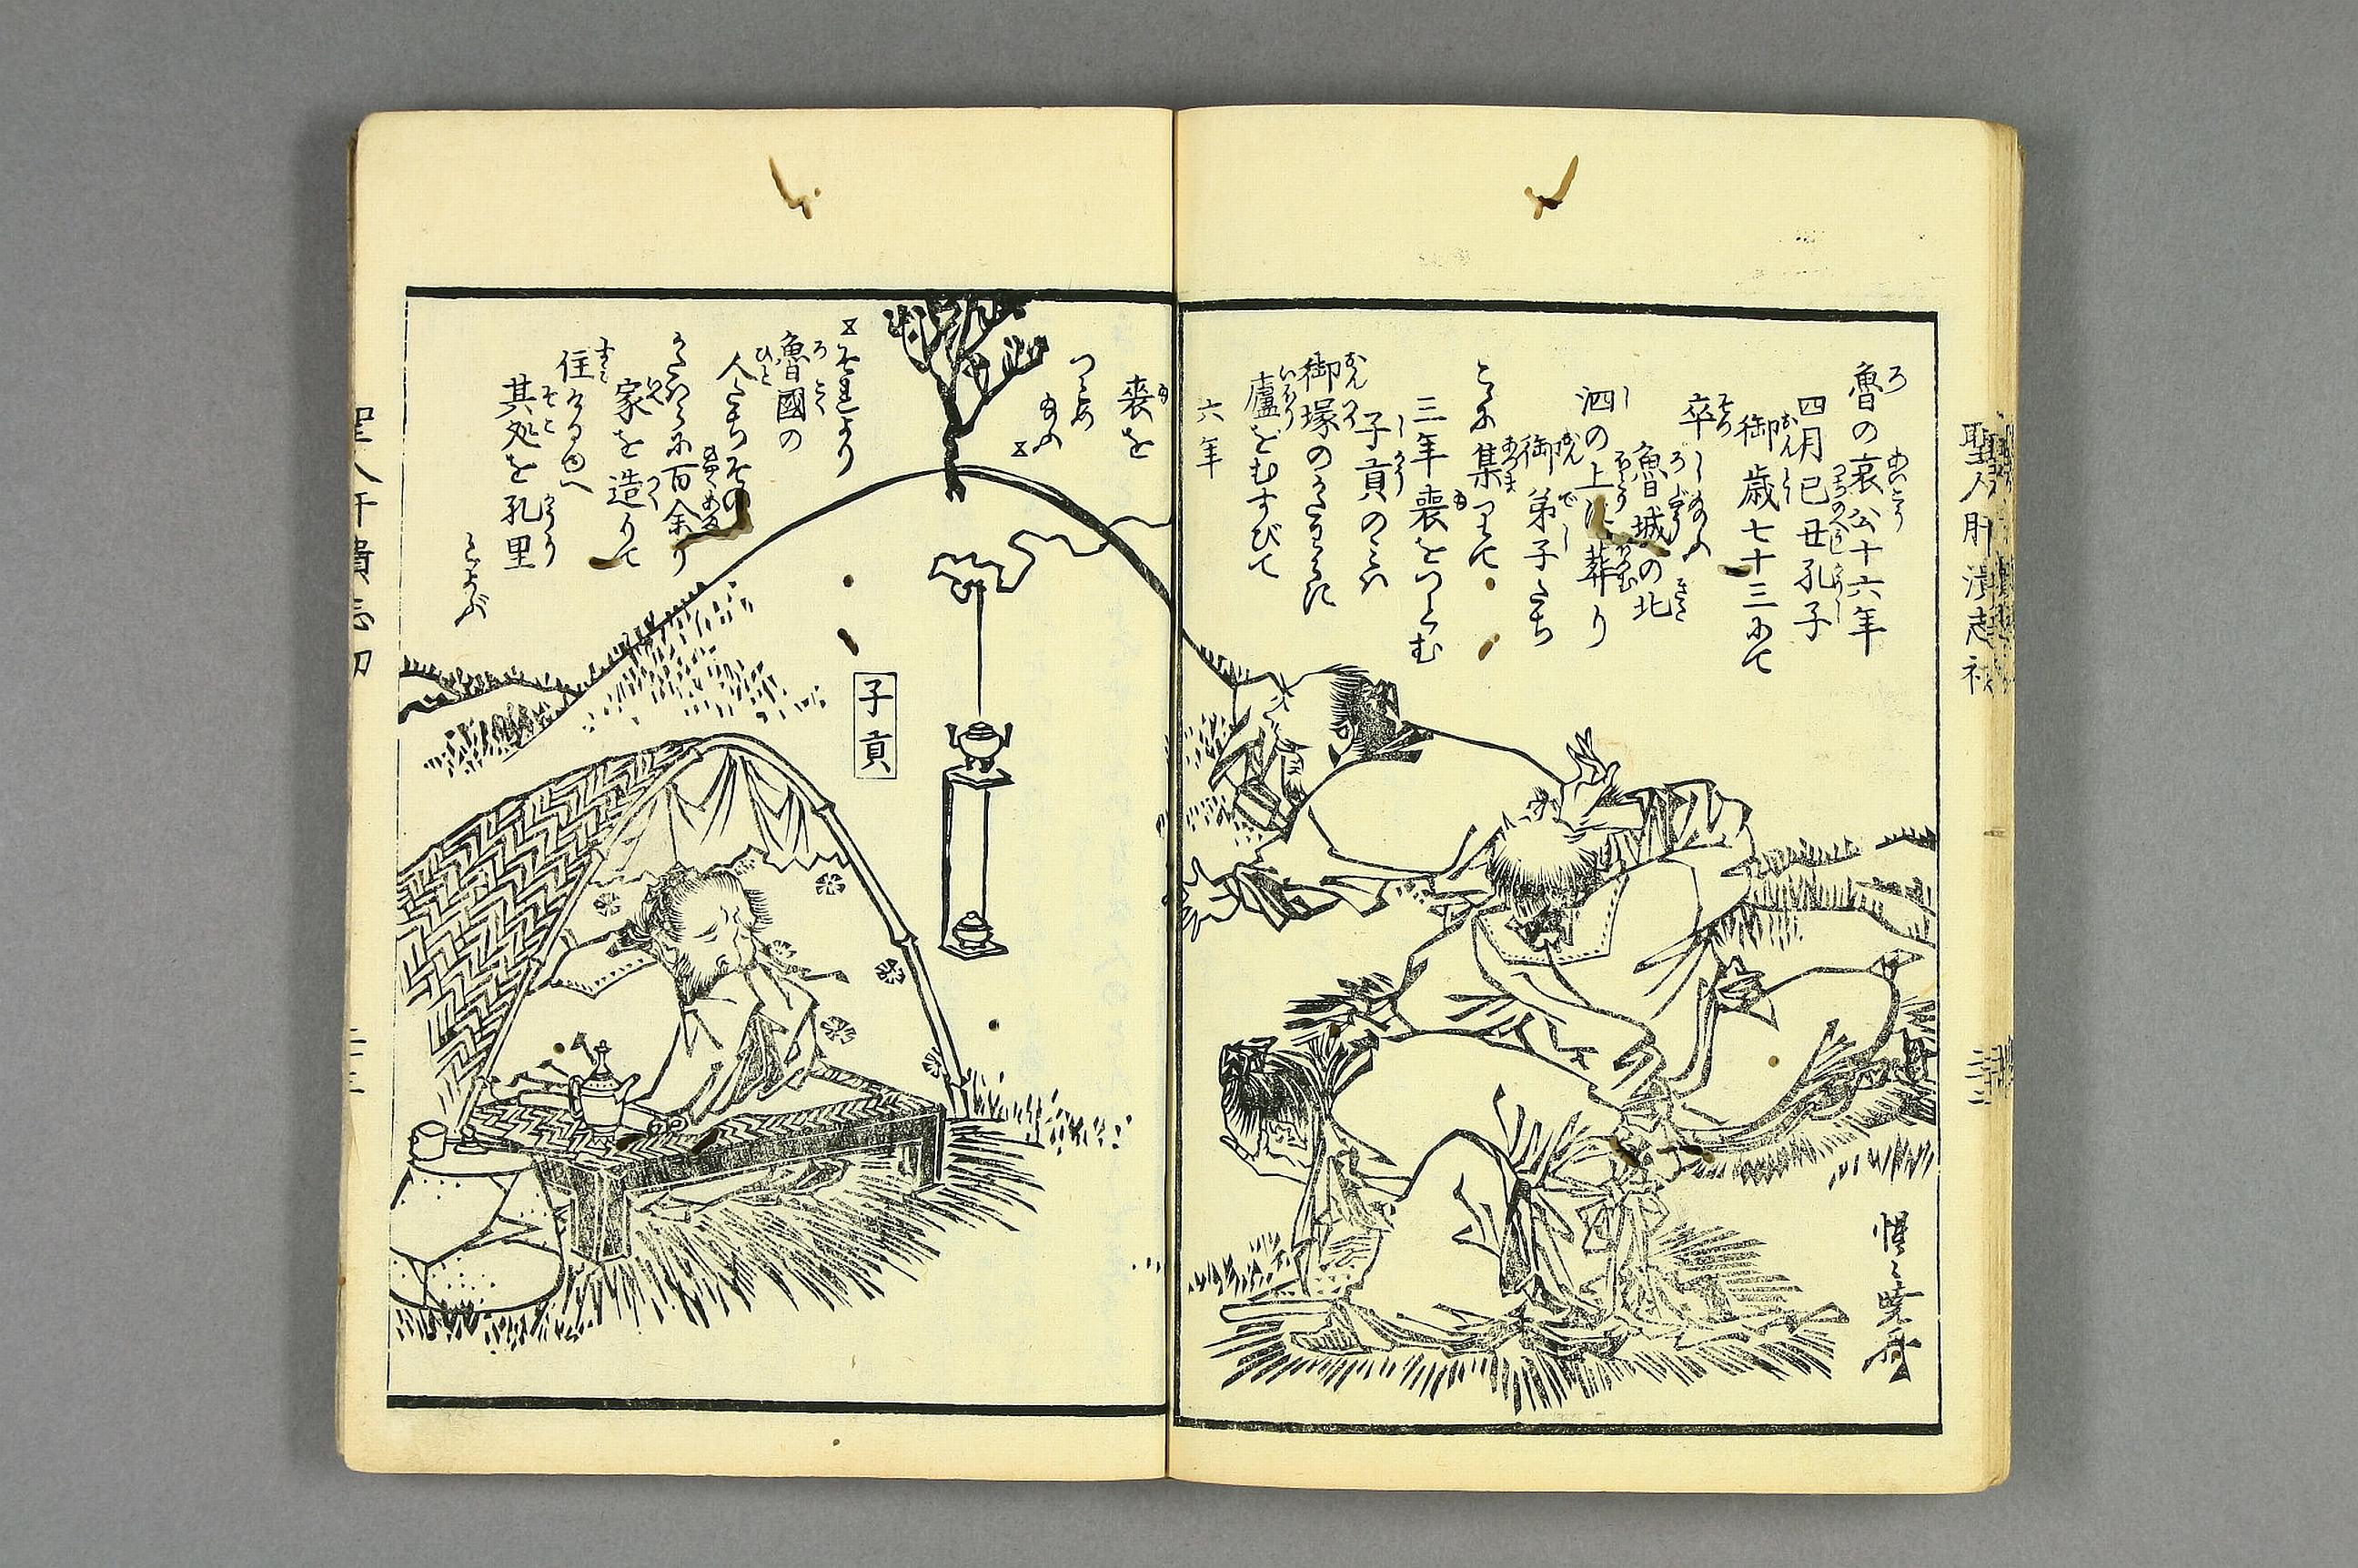 魯の哀公十六年
四月己丑孔子
御歳七十三にて
卒し給ふ
魯城の北
泗の上に葬り
御弟子たち
こゝに集りて
三年喪をつとむ
子貢のミハ
御塚のかたはらに
廬をむすびて
六年
喪を
つとめ
給ふ
それより
魯國の
人たちその
かたハらに百余り
家を造りて
住けるゆへ
其処を孔里
とよぶ
子貢
惺々暁斎
聖人肝潰志初
二十二